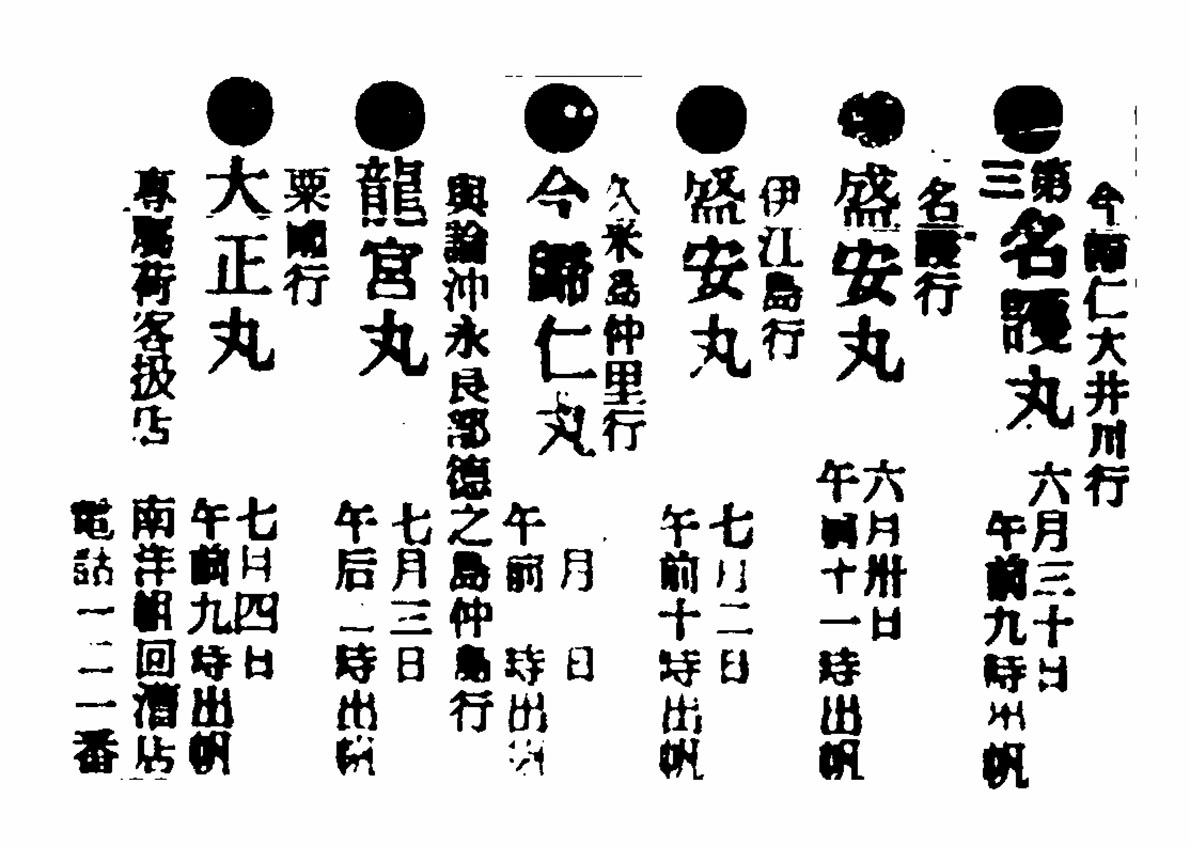 今歸仁大井川行
●第三名護丸
六月三十日
午前九時出帆
名護行
●盛安丸
六月卅日
午前十一時出帆
伊江島行
●盛安丸
七月二日
午前十時出帆
久米島仲里行
●今歸仁丸
月 日
午前 時出帆
與論沖永良部德之島仲島行
●龍宮丸
七月三日
午后二時出帆
粟國行
●大正丸
七月四日
午前九時出帆
專屬荷客扱店
南洋帆回漕店
電話一二一番